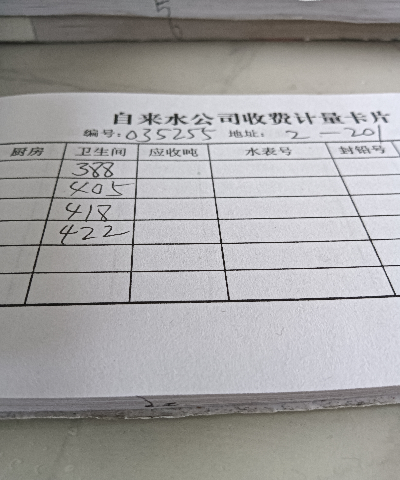 自来水公司收费计量卡片
编号: 035255 地址: 2-201
厨房 卫生间 应收吨 水表号 封铅号
388
405
418
422